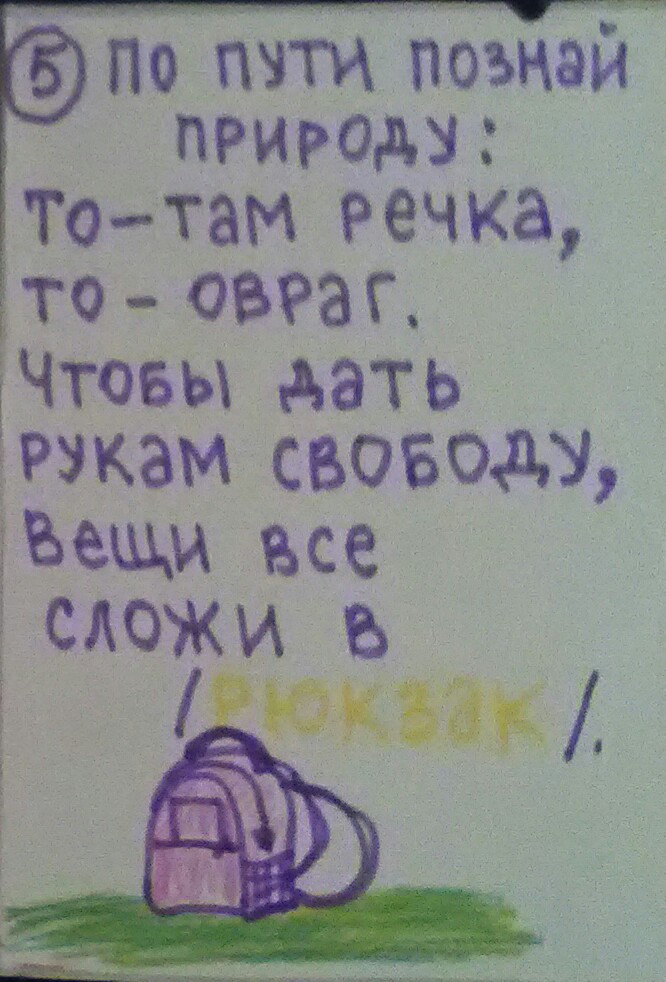 5 По пути познай
природу:
то-там речка,
то - овраг.
Чтобы дать
рукам свободу,
Вещи все
сложи в
/рюкзак/.